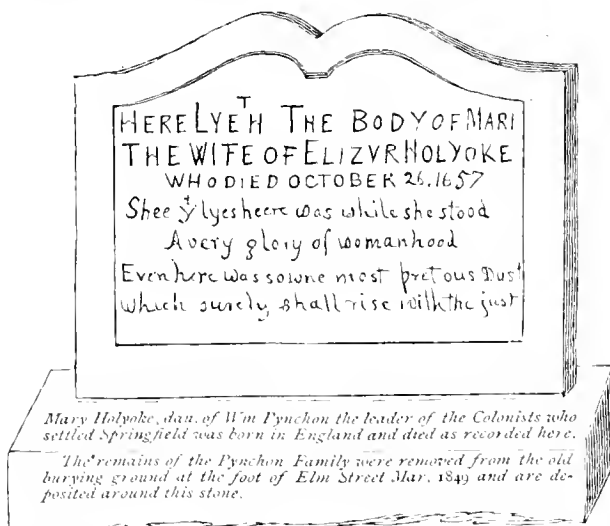 HERE LYETH THE BODY OF MARI
THE WIFE OF ELIZVR HOLYOKE
WHO DIED OCTOBER 26. 1657
Shee yt lyes heere was while she stood
A very glory of womanhood
Even here was sowne most pretous Dust
which surely shall rise with the just
Mary Holyoke, dau. of Wm Pynchon the leader of the Colonists who
settled Springfield was born in England and died as recorded here.
The remains of the Pynchon Family were removed from the old
burying ground at the foot of Elm Street Mar. 1849 and are de-
posited around this stone.